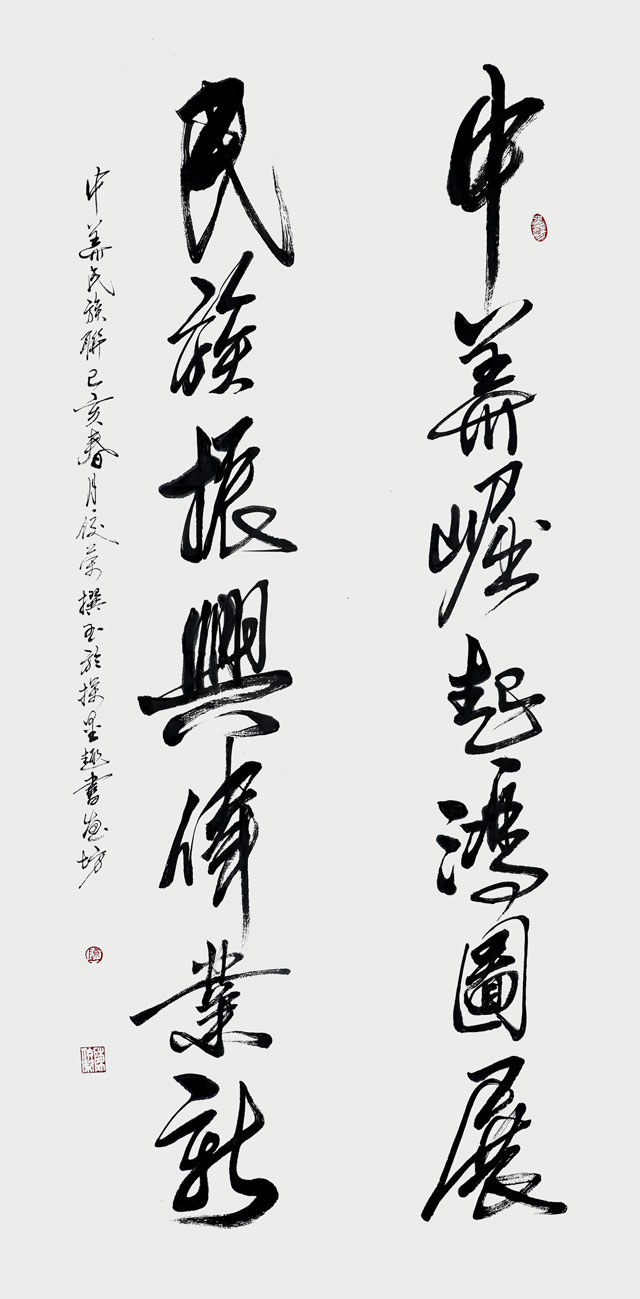 中華崛起鴻圖展
民族振興偉業新
中華民族聯己亥春月俊榮撰書於操墨趣書画坊